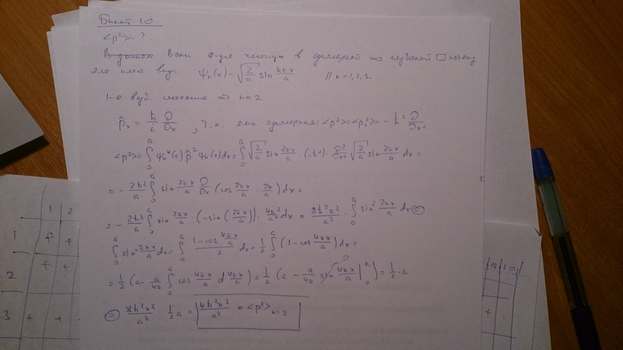 Билет 10.
<p²> ?
Волн. в одномерной потенц.
яме имеет вид: ψₙ(x) = √(2/a) sin(πnx/a) // n = 1, 2, 3, ..
1-е возб. состояние ⇒ n = 2
p̂ₓ = ħ/i ∂/∂x, т.к. яма одномерная: <p²> = <pₓ²> = -ħ² ∂²/∂x²
<p²> = ∫₀ᵃ ψₙ*(x) p̂² ψₙ(x) dx = ∫₀ᵃ √(2/a) sin(2πx/a) · (-ħ²) · ∂²/∂x² √(2/a) sin(2πx/a) dx =
= -2ħ²/a ∫₀ᵃ sin(2πx/a) ∂/∂x (cos(2πx/a) · 2π/a) dx =
= -2ħ²/a ∫₀ᵃ sin(2πx/a) · (-sin(2πx/a)) · 4π²/a² dx = 8ħ²π²/a³ · ∫₀ᵃ sin²(2πx/a) dx ⊜
∫₀ᵃ sin²(2πx/a) dx = ∫₀ᵃ (1-cos(4πx/a))/2 dx = 1/2 ∫₀ᵃ (1-cos(4πx/a)) dx =
= 1/2 (a - a/4π ∫₀ᵃ cos(4πx/a) d(4πx/a)) = 1/2 (a - a/4π sin(4πx/a) |₀ᵃ) = 1/2 · a
⊜ 8ħ²π²/a³ · 1/2 a = 4ħ²π²/a² = <p²>ₙ₌₂
1 2
1 + +
2
3 + +